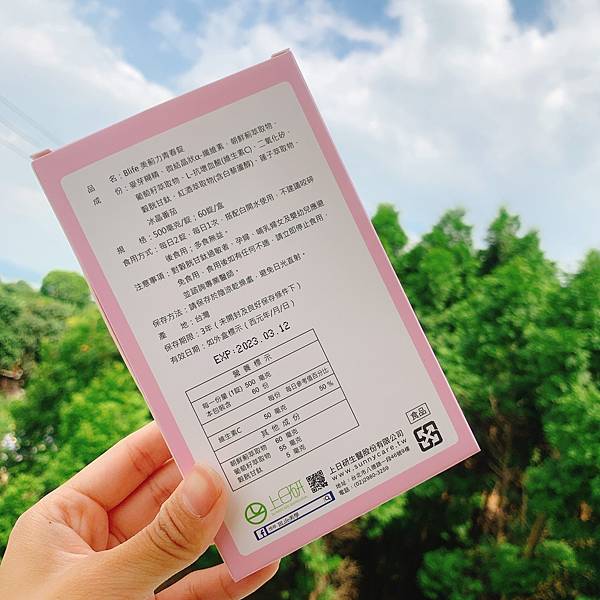 品　　名：Blife 美薊力青春錠
成　　份：麥芽糊精、微結晶狀α-纖維素、朝鮮薊萃取物、
葡萄籽萃取物、L-抗壞血酸(維生素C)、二氧化矽、
穀胱甘肽、紅酒萃取物(含白藜蘆醇)、蓮子萃取物、
冰晶番茄
規　　格：500毫克/錠；60錠/盒
食用方式：每日2錠，每日1次，搭配白開水使用，不建議咬碎
後食用；多食無益。
注意事項：對穀胱甘肽過敏者、孕婦、哺乳婦女及嬰幼兒應避
免食用，食用後如有任何不適，請立即停止食用，
並諮詢專業醫師。
保存方法：請保存於陰涼乾燥處，避免日光直射。
產　　地：台灣
保存期限：3年（未開封及良好保存條件下）
有效日期：如外盒標示（西元年/月/日）
EXP:2023.03.12
營養標示
每一份量 (1錠) 500 毫克
本包裝含 60 份
每份 每日參考值百分比
維生素C 50 毫克 50 %
其他成份
朝鮮薊萃取物 60 毫克
葡萄籽萃取物 55 毫克
穀胱甘肽 5 毫克
食品
上日研
上日研生醫股份有限公司
www.sunnycare.tw
地址：台北市八德路一段46號9樓
電話：(02)2980-3259